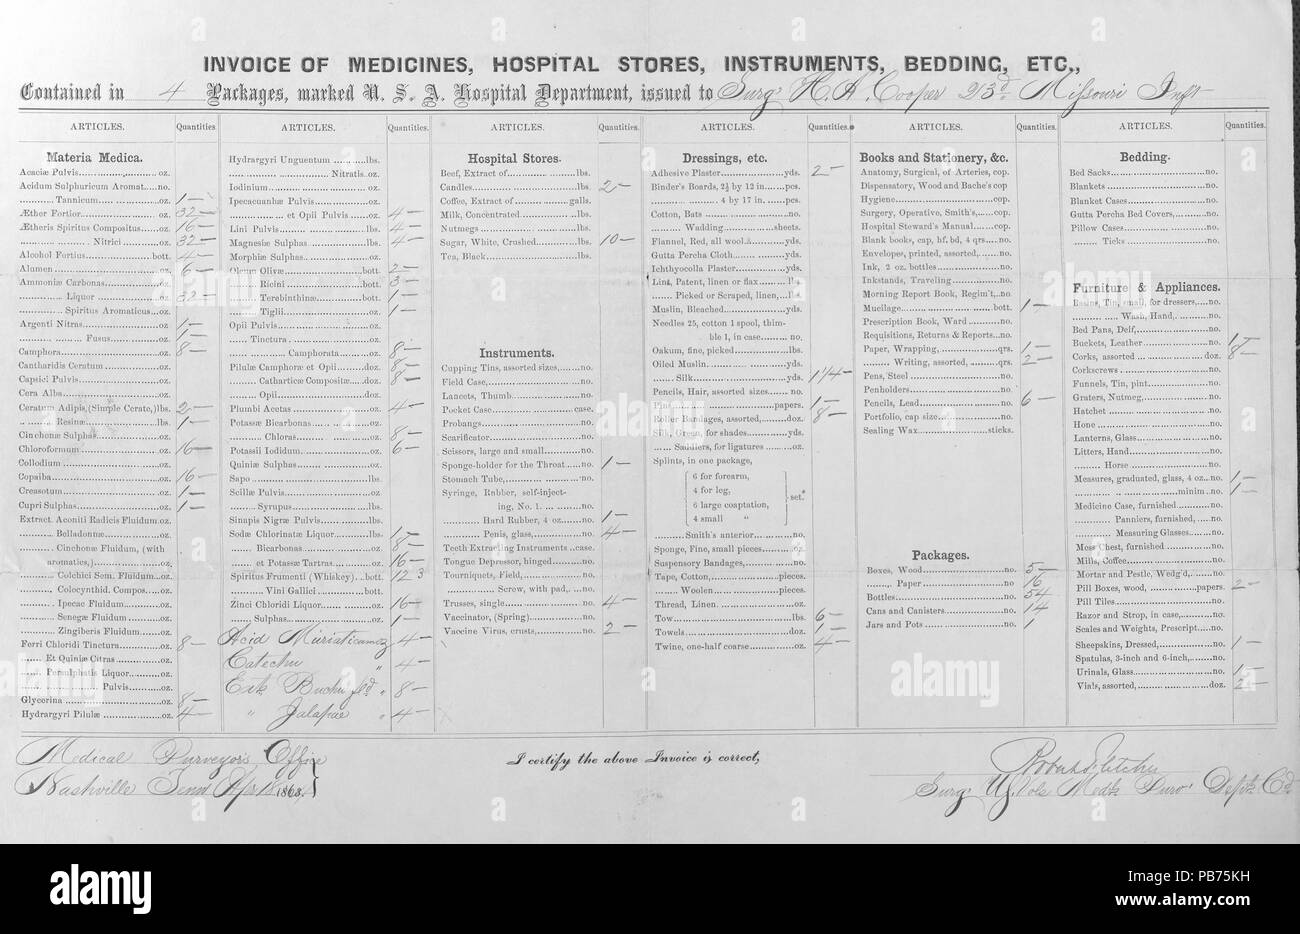 INVOICE OF MEDICINES, HOSPITAL STORES, INSTRUMENTS, BEDDING, ETC.,
Contained in 4 Packages, marked U. S. A. Hospital Department, issued to Surg. H. A. Cooper 23d. Missouri Inft
ARTICLES. Quantities.
Materia Medica.
Acaciæ Pulvis oz.
Acidum Sulphuricum Aromat. no.
Tannicum oz. 1
Æther Fortior oz. 32
Ætheris Spiritus Compositus oz. 16
Nitrici oz. 32
Alcohol Fortius bott. 4
Alumen oz. 6
Ammoniæ Carbonas oz.
Liquor oz. 32
Spiritus Aromaticus oz.
Argenti Nitras oz. 1
Fusus oz. 1
Camphora oz. 8
Cantharidis Ceratum oz.
Capsici Pulvis oz.
Cera Alba oz.
Ceratum Adipis, (Simple Cerate,) lbs. 2
Resinæ lbs. 1
Cinchonæ Sulphas oz.
Chloroformum oz. 16
Collodium oz.
Copaiba oz. 16
Creasotum oz. 1
Cupri Sulphas oz. 1
Extract. Aconiti Radicis Fluidum oz.
Belladonnæ oz.
Cinchonæ Fluidum, (with
aromatics,) oz.
Colchici Sem. Fluidum oz.
Colocynthid. Compos. oz.
Ipecac Fluidum oz.
Senegæ Fluidum oz.
Zingiberis Fluidum oz.
Ferri Chloridi Tinctura oz. 8
Et Quiniæ Citras oz.
Persulphatis Liquor oz.
Pulvis oz.
Glycerina oz. 8
Hydrargyri Pilulæ oz. 4
ARTICLES. Quantities.
Hydrargyri Unguentum lbs.
Nitratis oz.
Iodinium oz.
Ipecacuanhæ Pulvis oz.
et Opii Pulvis oz. 4
Lini Pulvis lbs. 4
Magnesiæ Sulphas lbs. 4
Morphiæ Sulphas oz.
Oleum Olivæ bott. 2
Ricini bott. 3
Terebinthinæ bott. 1
Tiglii oz. 1
Opii Pulvis oz.
Tinctura oz.
Camphorata oz. 8
Pilulæ Camphoræ et Opii doz. 8
Catharticæ Compositæ doz. 8
Opii doz
Plumbi Acetas oz. 4
Potassæ Bicarbonas oz.
Chloras oz. 8
Potassii Iodidum oz. 6
Quiniæ Sulphas oz.
Sapo lbs.
Scillæ Pulvis oz
Syrupus lbs.
Sinapis Nigræ Pulvis lbs.
Sodæ Chlorinatæ Liquor lbs.
Bicarbonas oz. 8
et Potassæ Tartras oz. 16
Spiritus Frumenti (Whiskey) bott. 12
Vini Gallici bott.
Zinci Chloridi Liquor oz. 16
Sulphas oz. 1
Acid Muriaticum oz 4
Catechu " 4
Ext Buchu fld " 8
" Jalapae " 4
ARTICLES. Quantities.
Hospital Stores.
Beef, Extract of lbs.
Candles lbs. 2
Coffee, Extract of galls.
Milk, Concentrated lbs.
Nutmegs lbs.
Sugar, White, Crushed lbs. 10
Tea, Black lbs.
Instruments.
Cupping Tins, assorted sizes, no.
Field Case, no.
Lancets, Thumb no.
Pocket Case case.
Probangs no.
Scarificator no.
Scissors, large and small no.
Sponge-holder for the Throat no. 1
Stomach Tube, no.
Syringe, Rubber, self-inject-
ing, No. 1. no.
Hard Rubber, 4 oz no. 1
Penis, glass, no. 4
Teeth Extracting Instruments case.
Tongue Depressor, hinged no.
Tourniquets, Field, no.
Screw, with pad, no.
Trusses, single no. 4
Vaccinator, (Spring) no.
Vaccine Virus, crusts, no. 2
ARTICLES. Quantities.
Dressings, etc.
Adhesive Plaster yds. 2
Binder's Boards, 2½ by 12 in pcs.
4 by 17 in. pcs.
Cotton, Bats no.
Wadding sheets.
Flannel, Red, all wool yds.
Gutta Percha Cloth yds.
Ichthyocolla Plaster yds.
Lint, Patent, linen or flax lbs
Picked or Scraped, linen, lbs.
Muslin, Bleached yds.
Needles 25, cotton 1 spool, thim-
ble 1, in case no.
Oakum, fine, picked lbs.
Oiled Muslin yds.
Silk yds. 1 1/4
Pencils, Hair, assorted sizes no.
Pins papers. 1
Roller Bandages, assorted, doz. 8
Silk, Green, for shades yds.
Saddlers, for ligatures oz.
Splints, in one package,
6 for forearm,
4 for leg,
6 large coaptation,
4 small "
set.
Smith's anterior no.
Sponge, Fine, small pieces oz.
Suspensory Bandages, no.
Tape, Cotton, pieces.
Woolen pieces.
Thread, Linen oz.
Tow lbs. 6
Towels doz. 1
Twine, one-half coarse oz. 4
ARTICLES. Quantities.
Books and Stationery, &c.
Anatomy, Surgical, of Arteries, cop
Dispensatory, Wood and Bache's cop
Hygiene cop.
Surgery, Operative, Smith's, cop.
Hospital Steward's Manual cop.
Blank books, cap, hf. bd, 4 qrs no.
Envelopes, printed, assorted, no.
Ink, 2 oz. bottles no.
Inkstands, Traveling no.
Morning Report Book, Regim't, no
Mucilage bott. 1
Prescription Book, Ward no.
Requisitions, Returns & Reports no.
Paper, Wrapping, qrs. 1
Writing, assorted, qrs. 2
Pens, Steel no.
Penholders no.
Pencils, Lead no. 6
Portfolio, cap size no.
Sealing Wax sticks.
Packages.
Boxes, Wood no. 5
Paper no 16
Bottles no. 54
Cans and Canisters no. 14
Jars and Pots no. 1
ARTICLES. Quantities.
Bedding.
Bed Sacks no.
Blankets no.
Blanket Cases no.
Gutta Percha Bed Covers, no.
Pillow Cases no.
Ticks no.
Furniture & Appliances.
Basins, Tin, small, for dressers, no.
Wash, Hand, no.
Bed Pans, Delf, no.
Buckets, Leather no. 1
Corks, assorted doz. 8
Corkscrews no.
Funnels, Tin, pint no.
Graters, Nutmeg, no.
Hatchet no.
Hone no.
Lanterns, Glass no.
Litters, Hand no.
Horse no.
Measures, graduated, glass, 4 oz no. 1
minim no. 1
Medicine Case, furnished no.
Panniers, furnished, no.
Measuring Glasses no.
Mess Chest, furnished no.
Mills, Coffee no.
Mortar and Pestle, Wedg'd, no.
Pill Boxes, wood, papers. 2
Pill Tiles no.
Razor and Strop, in case, no.
Scales and Weights, Prescript no.
Sheepskins, Dressed, no. 1
Spatulas, 3-inch and 6-inch, no.
Urinals, Glass no. 1
Vials, assorted, doz. 2
Medical Purveyor's Office
Nashville Tenn Apr 1863,
I certify the above Invoice is correct,
Surg. U.S. Vols Medl. Purv. Dept. Cd
alamy
Image ID: PB75KH
www.alamy.com